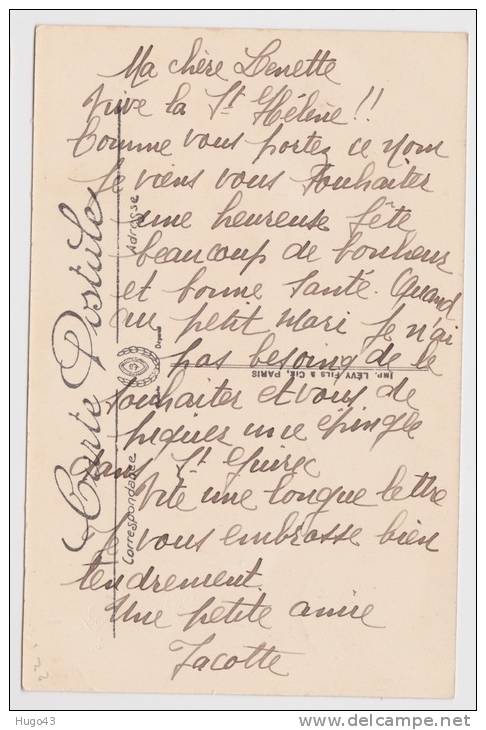 Ma chère Lenette
Vive la St Hélène!!
Comme vous portez ce nom
Je viens vous souhaiter
une heureuse fête
beaucoup de bonheur
et bonne santé. Quand
au petit mari je n'ai
pas besoing de le
souhaiter et vous de
piquer une épingle
dans St Guirec
Vite une longue lettre
Je vous embrasse bien
tendrement.
Une petite amie
Jacotte
Carte Postale
Correspondance
Adresse
IMP. LÉVY FILS & CIE, PARIS
Hugo43